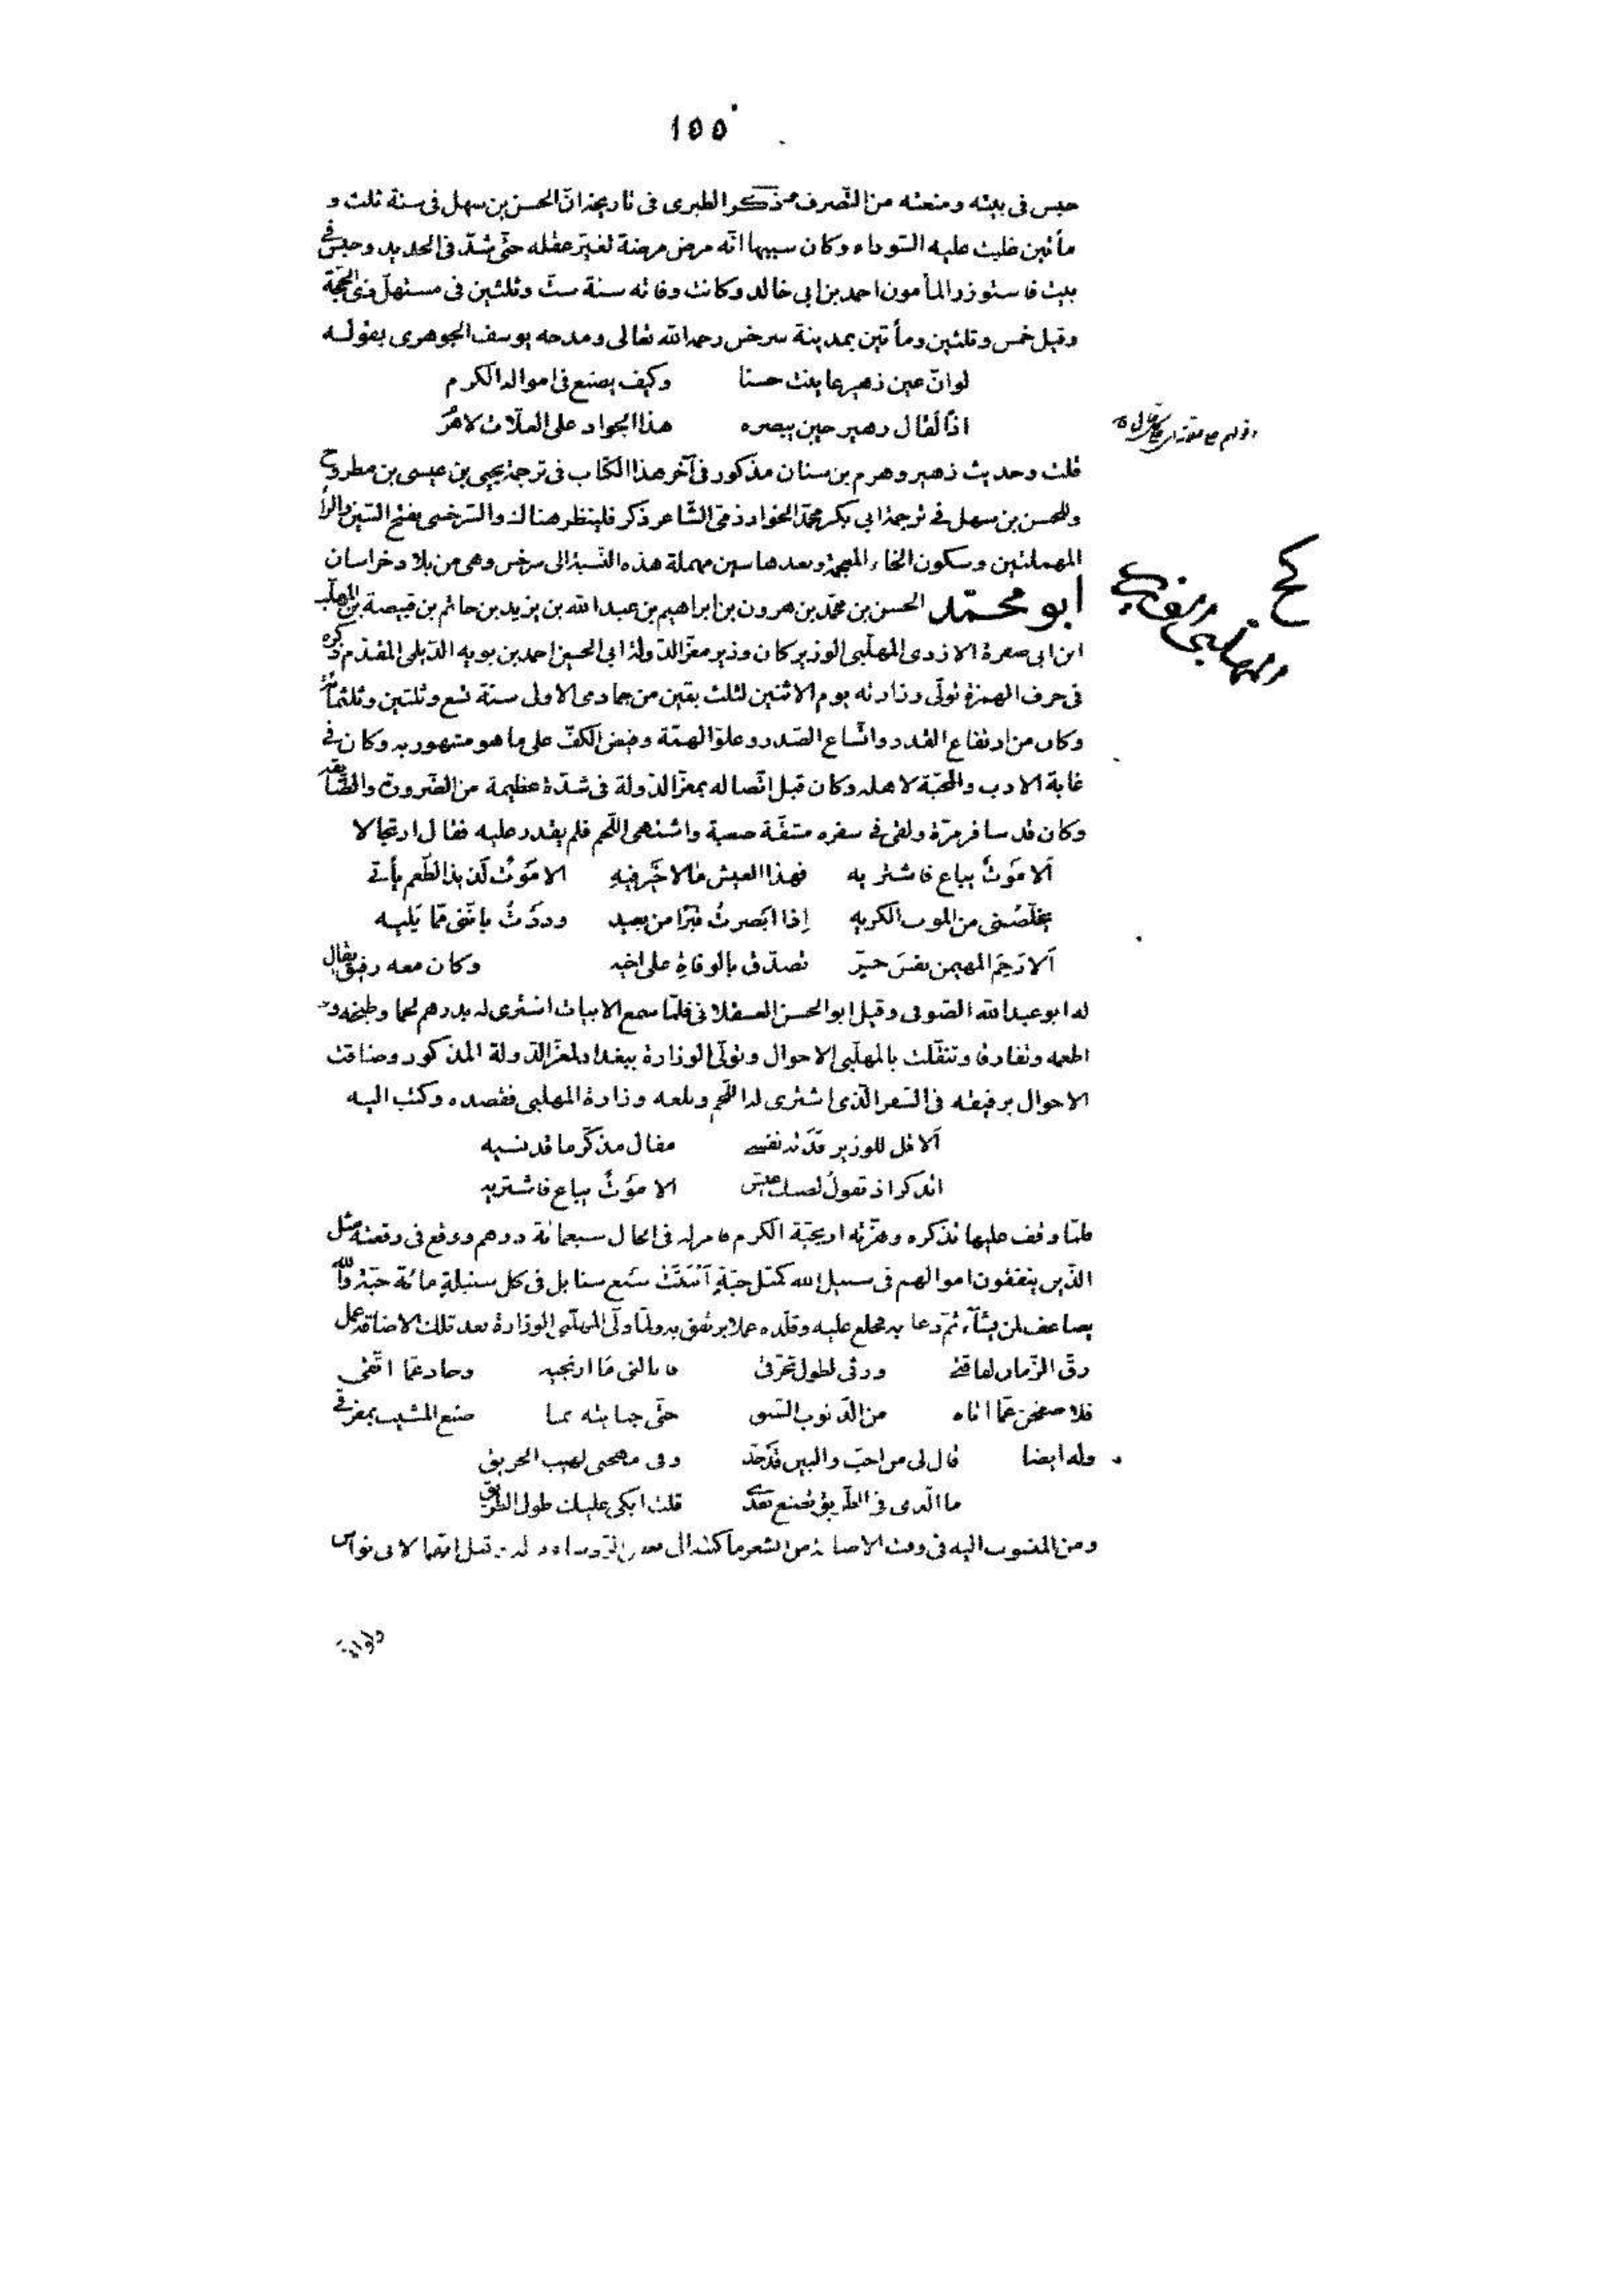 ١٥٥
حبس فى بيته ومنعته من التصرف وذكر الطبرى فى تاريخه انّ الحسن بن سهل فى سنة ثلث و
مأتين غلبت عليه السّوداء وكان سببها انّه مرض مرضة تغيّر عقله حتّى شدّ فى الحديد وحبس فى
بيت فاستوزر المأمون احمد بن ابى خالد وكانت وفاته سنة ستّ وثلثين فى مستهلّ ذى الحجّة
وقيل خمس وثلثين ومأتين بمدينة سرخس رحمه الله تعالى ومدحه يوسف الجوهرى بقوله
لو انّ عين زهير عاينت حسنا وكيف يصنع فى امواله الكرم
اذًا لقال زهير حين يبصره هذا الجواد على العلّات لا هرم
قلت وحديث زهير وهرم بن سنان مذكور فى آخر هذا الكتاب فى ترجمة يحيى بن عيسى بن مطروح
وللحسن بن سهل فى ترجمة ابى بكر محمّد الخوارزمى الشّاعر ذكر فلينظر هناك والسّرخسى بفتح السّين والرّاء
المهملتين وسكون الخاء المعجمة وبعدها سين مهملة هذه النّسبة الى سرخس وهى من بلاد خراسان
ابو محمّد الحسن بن محمّد بن هرون بن ابراهيم بن عبد الله بن يزيد بن حاتم بن قبيصة بن المهلّب
ابن ابى صفرة الازدى المهلّبى الوزير كان وزير معزّ الدّولة ابى الحسين احمد بن بويه الدّيلمى المقدّم ذكره
فى حرف الهمزة تولّى وزارته يوم الاثنين لثلث بقين من جمادى الاولى سنة تسع وثلثين وثلثمائة
وكان من ارتفاع القدر واتّساع الصّدر وعلوّ الهمّة وفيض الكفّ على ما هو مشهور به وكان فى
غاية الادب والمحبّة لاهله وكان قبل اتّصاله بمعزّ الدّولة فى شدّة عظيمة من الضّرورة والضّائقة
وكان قد سافر مرّة ولقى فى سفره مشقّة صعبة واشتهى اللّحم فلم يقدر عليه فقال ارتجالا
ألا مَوتٌ يباع فاشتريه فهذا العيش مالا خَيرَ فيهِ الا مَوتٌ لذيذ الطّعم يأتى
يخلّصُنى من الموت الكريهِ إذا ابَصرتُ قبرًا من بعيد وددتُ باننى ممّا يَليه
ألا رَحِمَ المهيمن نفسَ حرّ تصدّق بالوفاةِ على اخيه وكان معه رفيق يقال
له ابو عبد الله الصّوفى وقيل ابو الحسن العسقلانى فلمّا سمع الابيات اشترى له بدرهم لحما وطبخه و
اطعمه وتفارقا وتنقّلت بالمهلّبى الاحوال وتولّى الوزارة ببغداد لمعزّ الدّولة المذكور وضاقت
الاحوال برفيقه فى السّفر الّذى اشترى له اللّحم وبلغه وزارة المهلبى فقصده وكتب اليه
ألا قل للوزير فدَته نفسى مقال مذكّر ما قد نسيه
اتذكر اذ تقول لضنك عيش الا مَوتٌ يباع فاشتريه
فلمّا وقف عليها تذكره وهزّته اريحيّة الكرم فامر له فى الحال سبعمائة درهم ووقع فى رقعته مثل
الّذين ينفقون اموالهم فى سبيل الله كمثل حبّةٍ أنبتَتْ سَبع سنابل فى كل سنبلةٍ مائة حبّة والله
يضاعف لمن يشآء ثمّ دعا به فخلع عليه وقلّده عملا يرتفق به ولمّا ولّى المهلّبى الوزارة بعد تلك الاضاقة عمل
رقّ الزّمان لفاقتى ورثى لطول تحرّقى فانالنى مَا ارتجيه وحاد عمّا اتّقى
فلاصفحن عمّا اتاه من الذّنوب السّبق حتّى جنايته بما صنع المشيب بمفرقى
وله ايضا قال لى من احبّ والبين قد جدّ وفى مهجتى لهيب الحريق
ما الّذى فى الطّريق تصنع بعدى قلت ابكى عليك طول الطّريق
ومن المنسوب اليه فى وقت الاضاقة من الشعر ما كتبه الى بعض الرّؤساء وقيل انّها لابى نواس